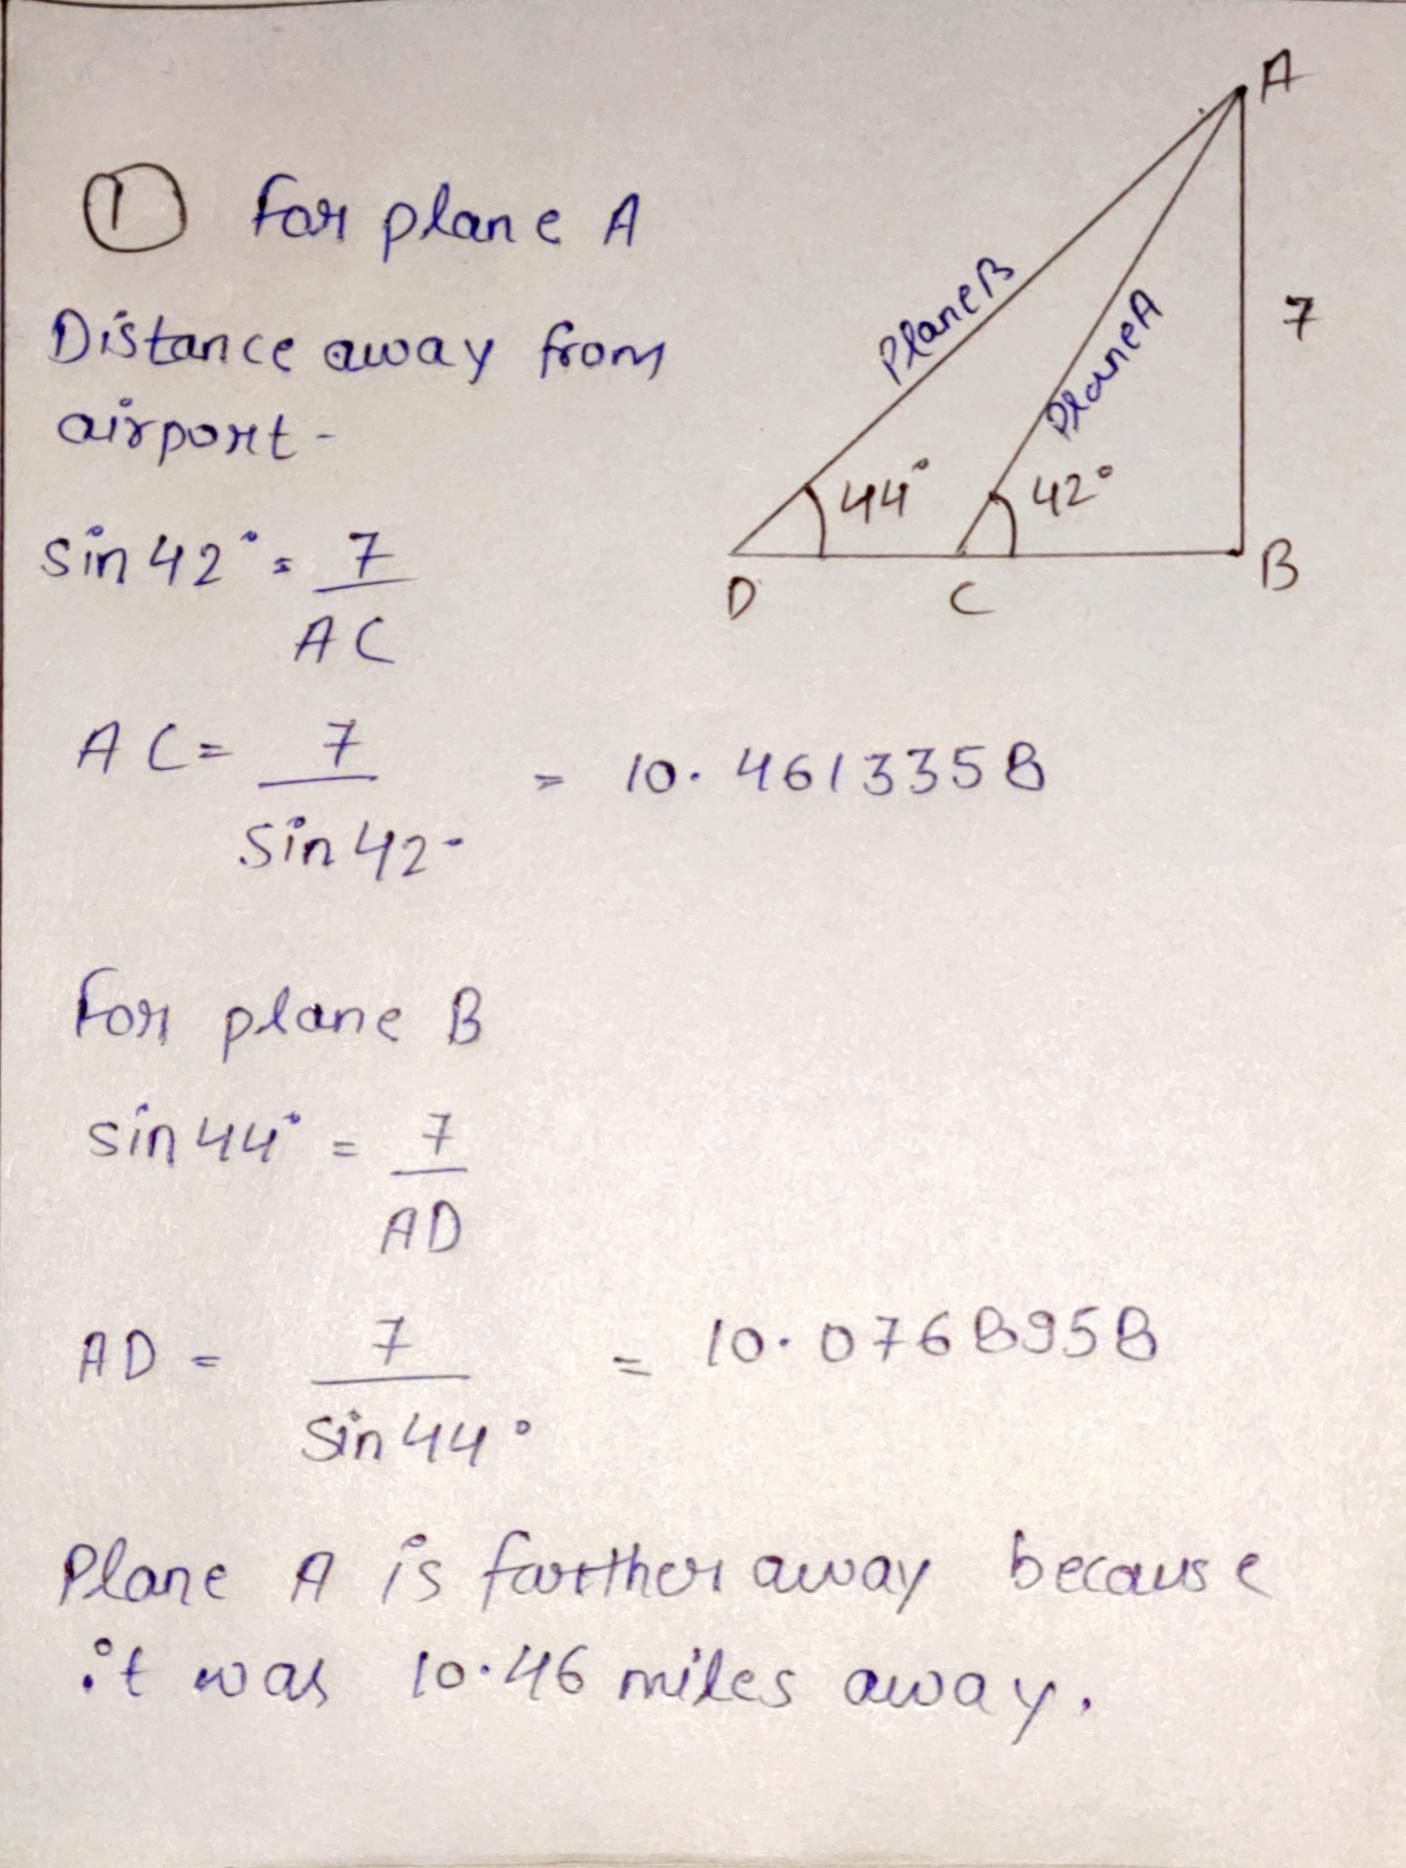 ① For plane A
Distance away from
airport -
sin 42° = 7
AC
AC = 7 = 10.4613358
sin 42°
For plane B
sin 44° = 7
AD
AD = 7 = 10.0768958
sin 44°
Plane A is farther away because
it was 10.46 miles away.
A
Plane B
Plane A
7
44°
42°
D
C
B